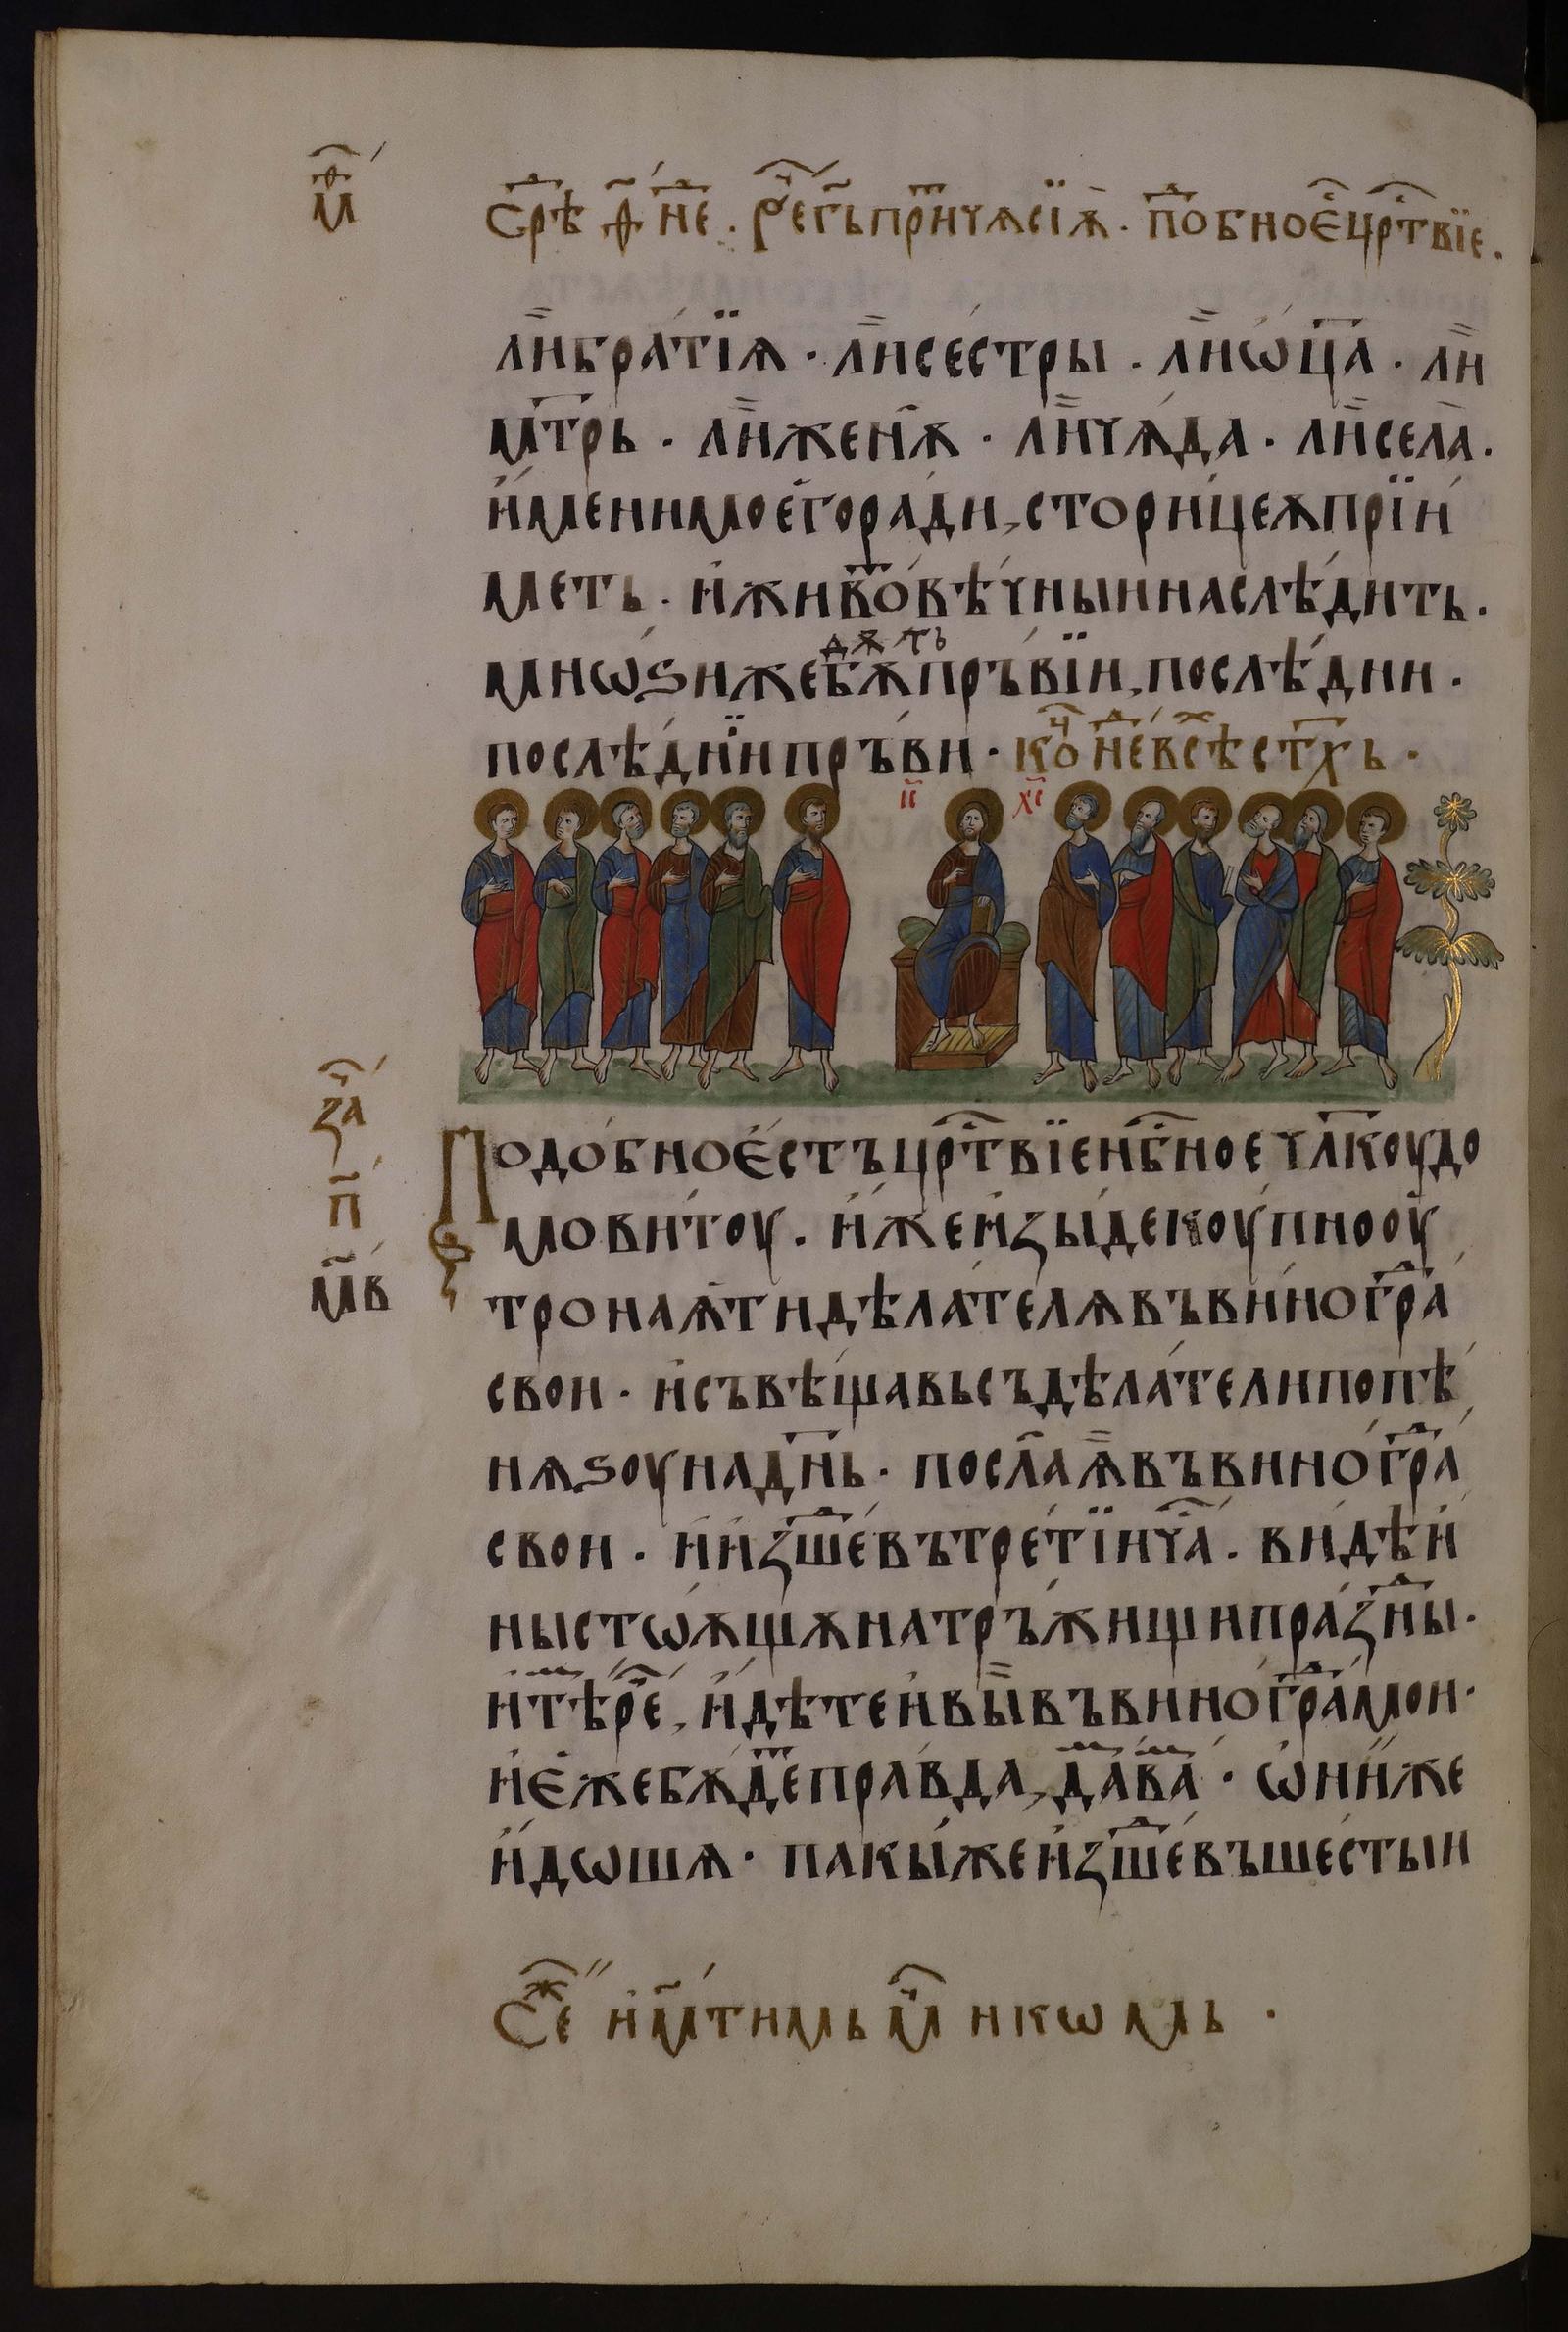 м҃ѳ
Срѣ ѳ҃ не҃ⷣ. Рⷱ҇е г҃ь притчѫ сїѫ. побⷣно е҆ црⷭ҇твїе.
лѝ бра́тїѧ · лѝ сестры . лѝ ѡ҆ц҃а . лѝ
мт҃рь . лѝ женѫ̀ · лѝ чѧ́да . лѝ села̀ .
и҆мени моего ра́ди, сторицеѫ прїи
меть . и҆ живоⷮ вѣ́чныи наслѣ́дить .
мнѡѕи же бѫ прь́вїи, послѣ́дни .
дѫть
послѣ́днїи прь́ви · коⷰ҇ неⷣ всѣ стⷯхь .
і҃с х҃с
за҃ⷱ
п҃
м҃в
Подобно е҆стъ црⷭ҇твїе нбⷭ҇ное чл҃коу до
мови́тоу . и҆же и҆зы́де коупно оу
тро наѧ́ти дѣла́телѧ въ ви́ногра́ⷣ
свои · и҆ съвѣщавь съ дѣла́тели по пѣ́
нѧѕоу на дн҃ь · посла̀ ѧ҆̀ въ виногра́ⷣ
свои . и҆ и҆зше́ⷣ въ тре́тїи ча́ⷭ . ви́дѣ и҆
ны стѡѫщѫ на трь́жищи пра́зⷣны .
и҆ тѣⷨ ре́ⷱ, и҆дѣте и҆ вы̀ въ виногра́ⷣ мои ·
и҆ е҆же бѫ́деⷮ пра́вда, даⷨ ваⷨ · ѡ҆ни же
и҆дѡшѧ · пакы́ же и҆зше́ⷣ въ шестыи
Сеⷤ и҆ м҃тимь м҃ ⷱ никѡмь .